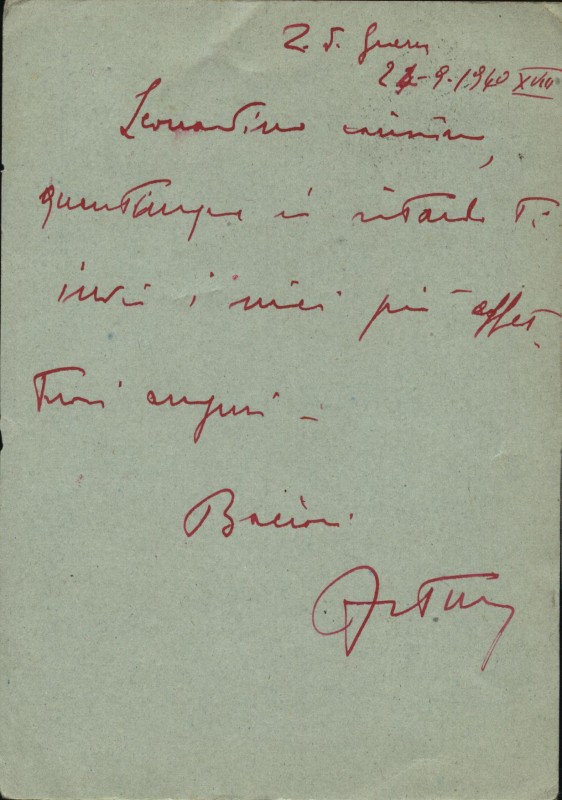 Z. d. Guerra
21-9-1940 XVIII
Leonardino carissimo,
quantunque in ritardo ti
invio i miei più affet-
tuosi auguri -
Bacioni.
Arturo